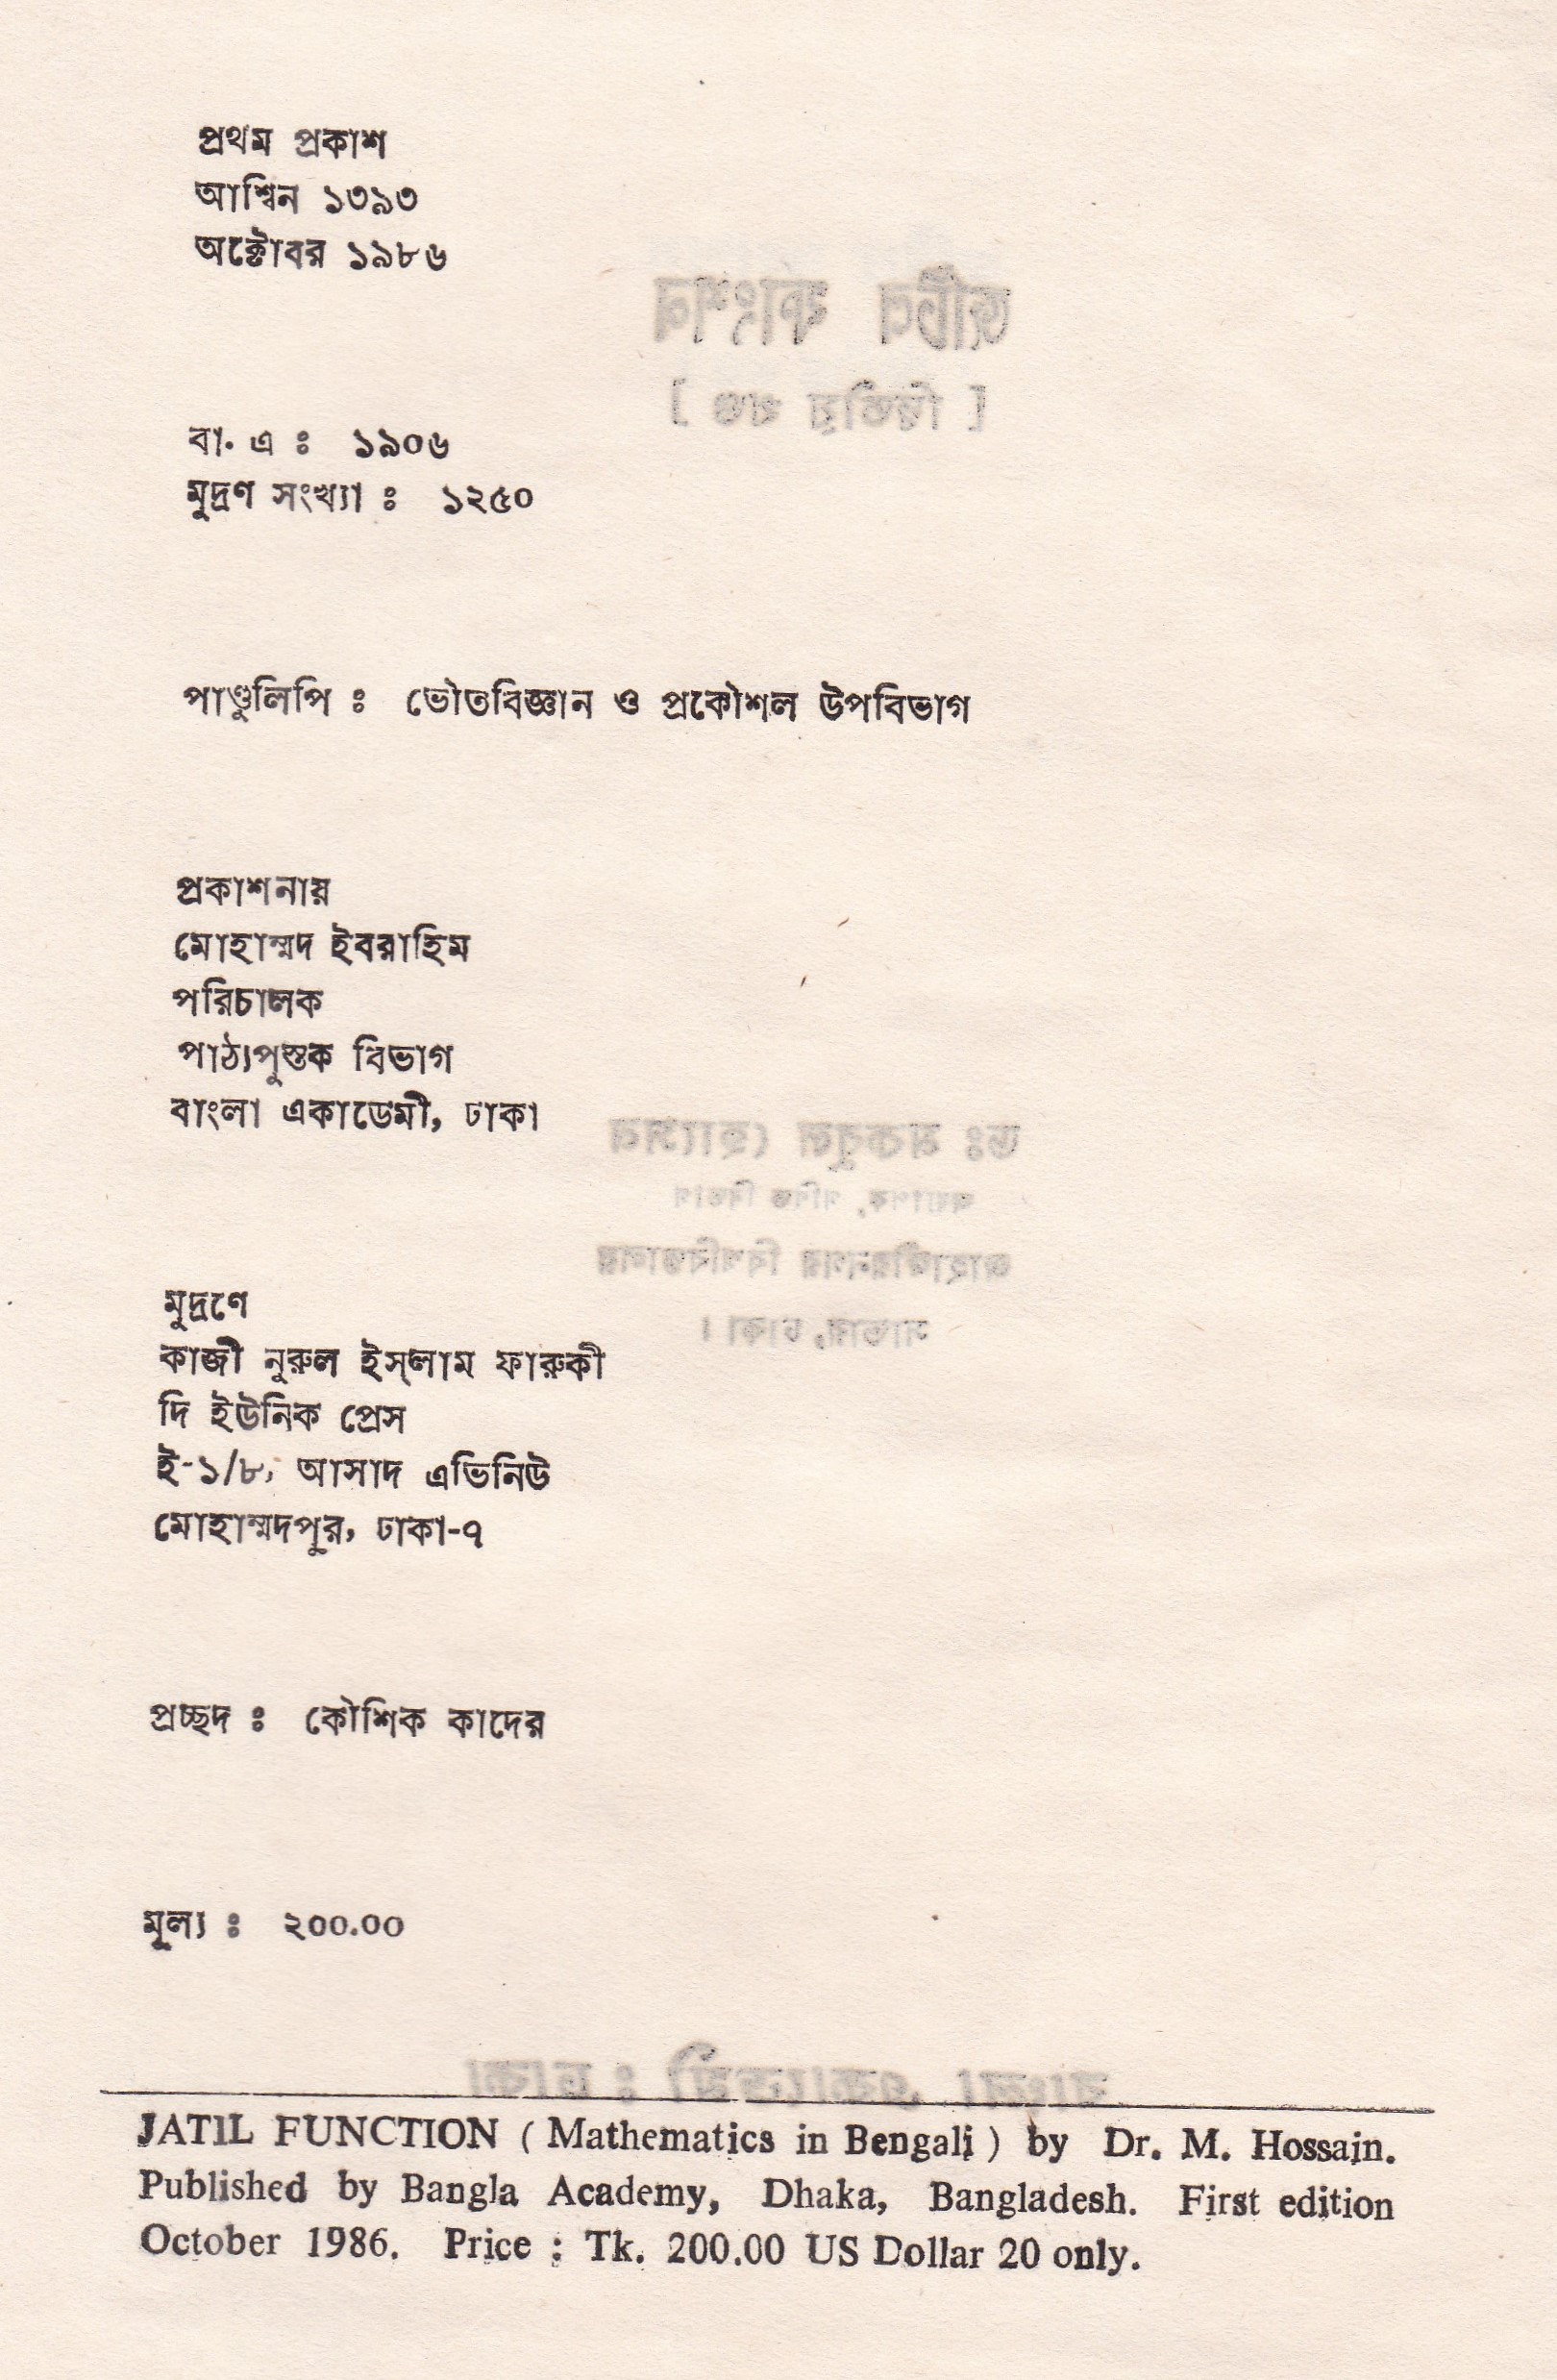 প্রথম প্রকাশ
আশ্বিন ১৩৯৩
অক্টোবর ১৯৮৬
বা. এ ঃ ১৯০৬
মুদ্রণ সংখ্যা ঃ ১২৫০
পাণ্ডুলিপি ঃ ভৌতবিজ্ঞান ও প্রকৌশল উপবিভাগ
প্রকাশনায়
মোহাম্মদ ইবরাহিম
পরিচালক
পাঠ্যপুস্তক বিভাগ
বাংলা একাডেমী, ঢাকা
মুদ্রণে
কাজী নুরুল ইস্‌লাম ফারুকী
দি ইউনিক প্রেস
ই-১/৮, আসাদ এভিনিউ
মোহাম্মদপুর, ঢাকা-৭
প্রচ্ছদ ঃ কৌশিক কাদের
মূল্য ঃ ২০০.০০
JATIL FUNCTION ( Mathematics in Bengali ) by Dr. M. Hossain.
Published by Bangla Academy, Dhaka, Bangladesh. First edition
October 1986. Price : Tk. 200.00 US Dollar 20 only.